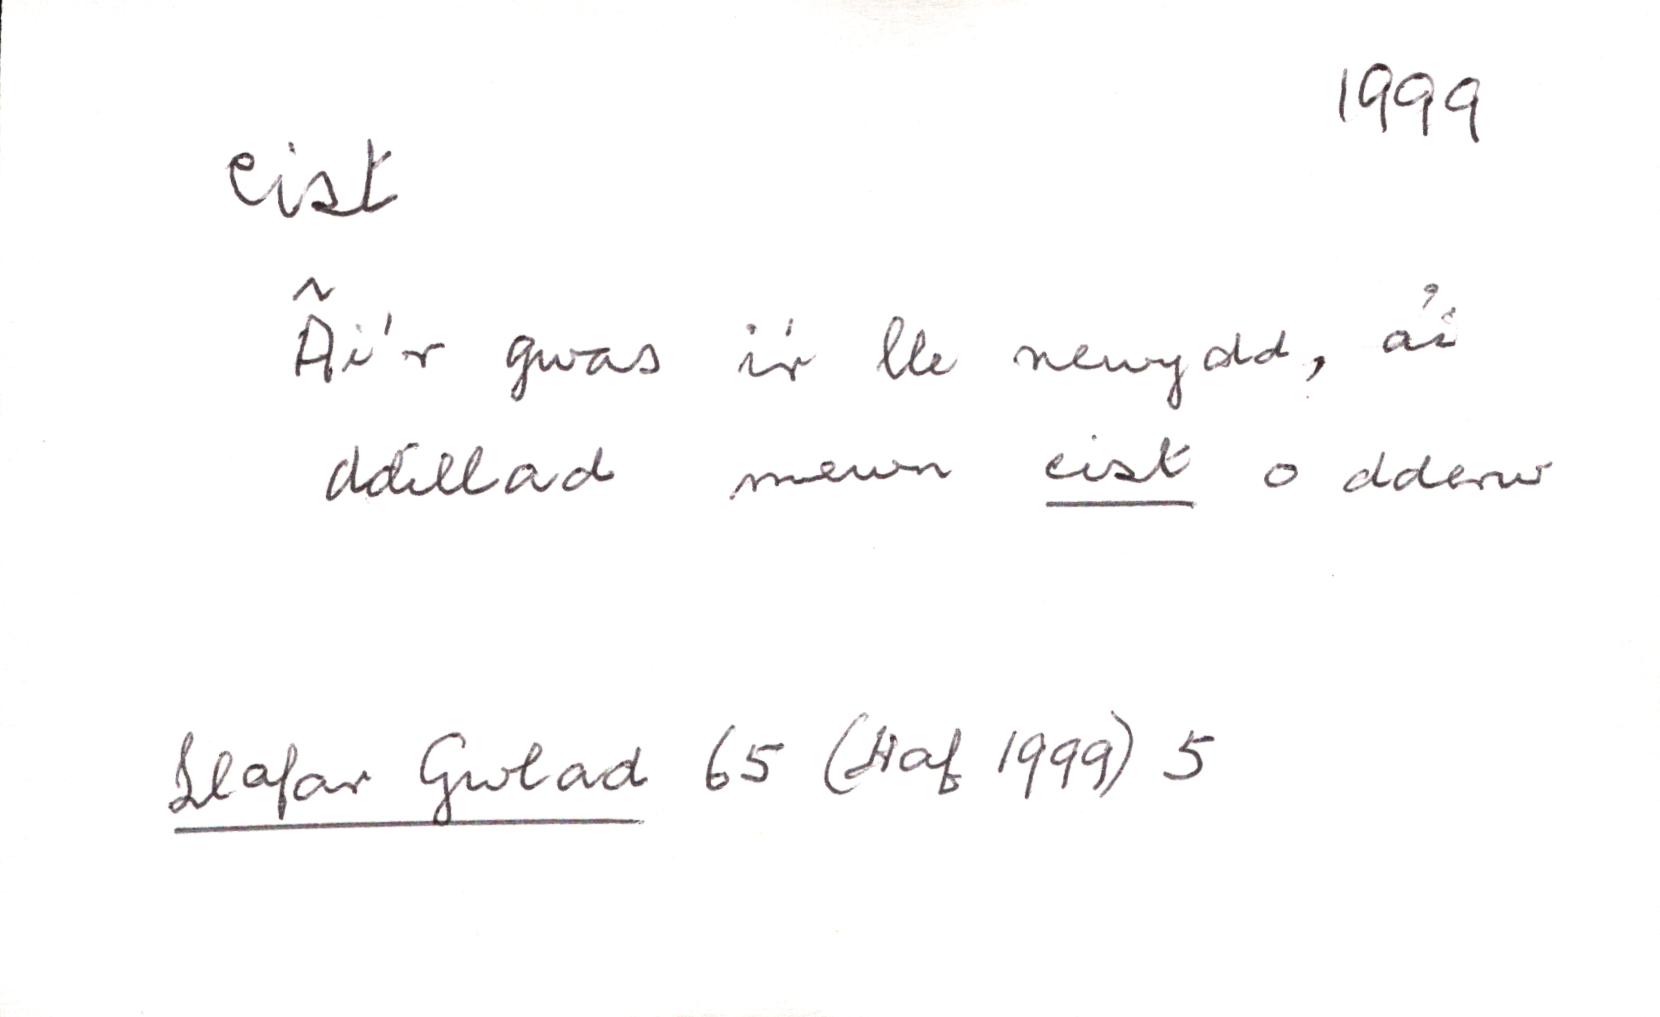 1999
eist
Ãi'r gwas i'r lle newydd, a'i
ddillad mewn cist o dderw
Llafar Gwlad 65 (Haf 1999) 5